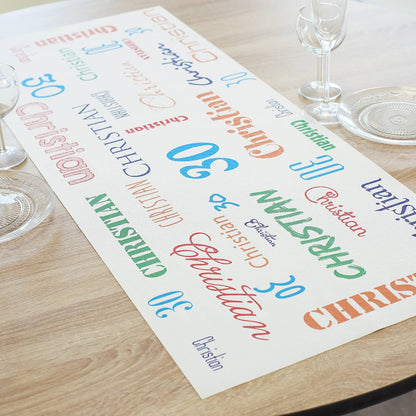 Christian
Christian
30
VIVIANNE
Christian
30
30
Christian
Christian
Christian
Christian
30
Christian
CHRISTIAN
Christian
Christian
30
30
Christian
Christian
CHRISTIAN
30
Christian
Christian
CHRISTIAN
CHRISTIAN
Christian
30
CHRISTIAN
Christian
30
CHRIST
Christian